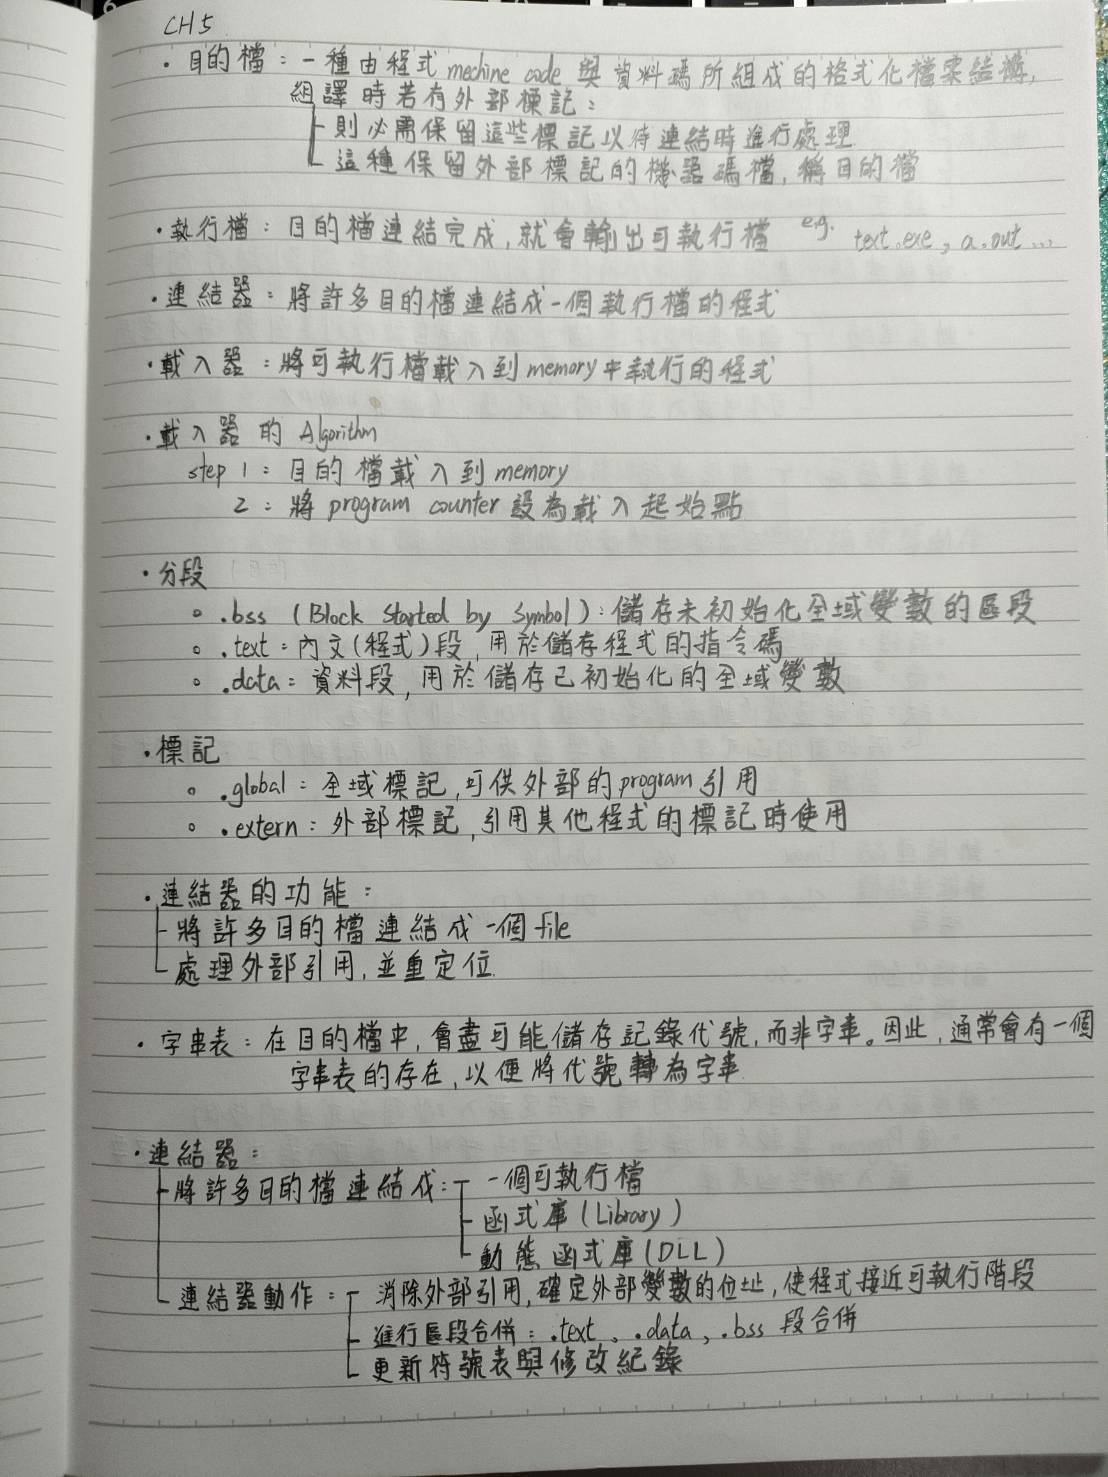 CH5
・目的檔：一種由程式 mechine code 與資料碼所組成的格式化檔案結構,
組譯時若有外部標記：
├ 則必需保留這些標記以待連結時進行處理.
└ 這種保留外部標記的機器碼檔, 稱目的檔
・執行檔：目的檔連結完成, 就會輸出可執行檔 e.g. text.exe, a.out ...
・連結器：將許多目的檔連結成一個執行檔的程式
・載入器：將可執行檔載入到memory中執行的程式
・載入器的 Algorithm
step 1：目的檔載入到 memory
2：將 program counter 設為載入起始點
・分段
○ .bss (Block Started by Symbol)：儲存未初始化全域變數的區段
○ .text：內文(程式)段, 用於儲存程式的指令碼
○ .data：資料段, 用於儲存已初始化的全域變數
・標記
○ .global：全域標記, 可供外部的program引用
○ .extern：外部標記, 引用其他程式的標記時使用
・連結器的功能：
├ 將許多目的檔連結成一個file
└ 處理外部引用, 並重定位.
・字串表：在目的檔中, 會盡可能儲存記錄代號, 而非字串。因此, 通常會有一個
字串表的存在, 以便將代號轉為字串
・連結器：
├ 將許多目的檔連結成：┬ 一個可執行檔
├ 函式庫 (Library)
└ 動態函式庫 (DLL)
└ 連結器動作：┬ 消除外部引用, 確定外部變數的位址, 使程式接近可執行階段
├ 進行區段合併：.text、.data, .bss 段合併
└ 更新符號表與修改紀錄